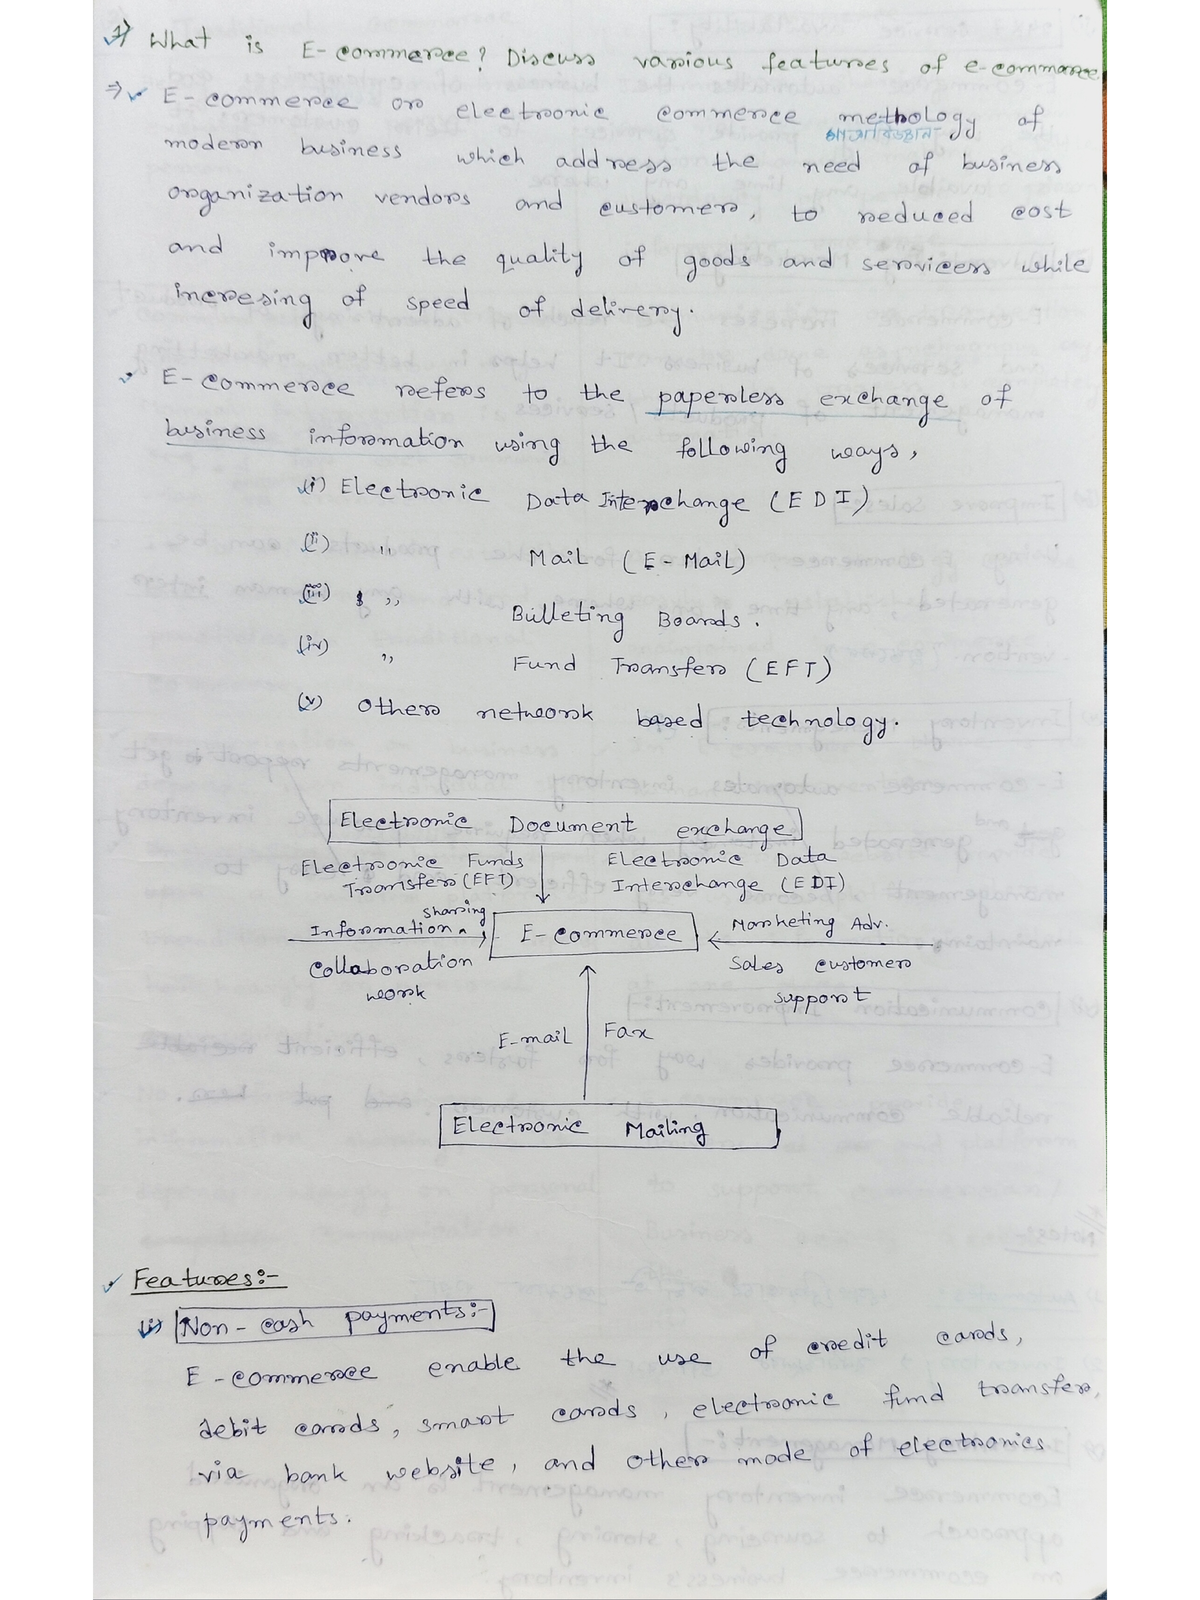 1) What is E-commerce? Discuss various features of e-commerce
⇒ E-commerce or electronic commerce methology of
modern business which address the need of business
organization vendors and customers, to reduced cost
and improve the quality of goods and servicers while
incresing of speed of delivery.
E-commerce refers to the paperless exchange of
business information using the following ways,
(i) Electronic Data Interchange (EDI)
(ii) ,, Mail (E-Mail)
(iii) ,, Bulleting Boards.
(iv) ,, Fund Transfer (EFT)
(v) Other network based technology.
Electronic Document exchange
Electronic Funds Transfer (EFT)
Electronic Data Interchange (EDI)
Information sharing
E-commerce
Marketing Adv.
Collaboration work
Sales customer support
E-mail Fax
Electronic Mailing
Features:-
(i) Non-cash payments:-
E-commerce enable the use of credit cards,
debit cards, smart cards, electronic fund transfer,
via bank website, and other mode of electronics
payments.